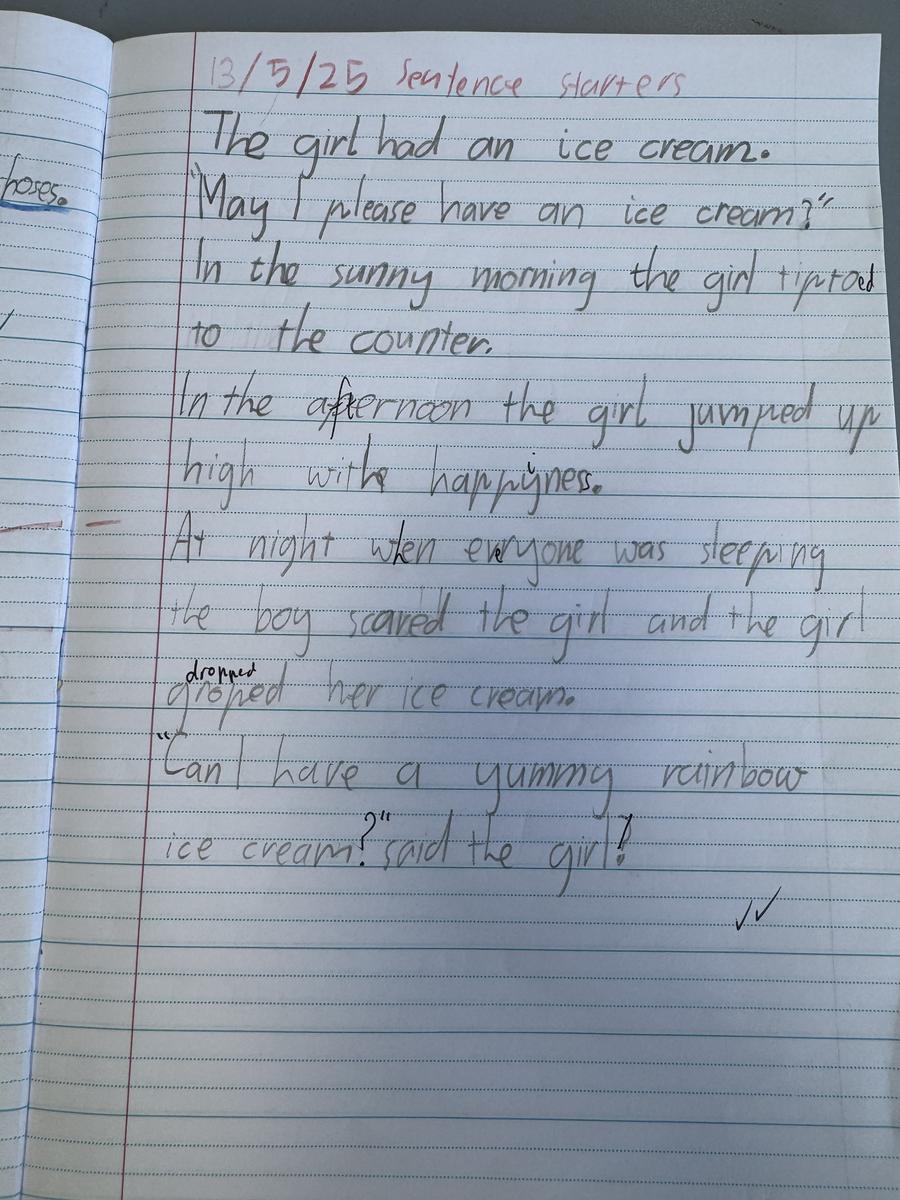 13/5/25 Sentence starters
The girl had an ice cream.
hoses.
"May I please have an ice cream?"
In the sunny morning the girl tiptoed
to the counter.
In the afternoon the girl jumped up
high withe happyiness.
At night when everyone was sleeping
the boy scared the girl and the girl
dropped
droped her ice cream.
"Can I have a yummy rainbow
ice cream?" said the girl!